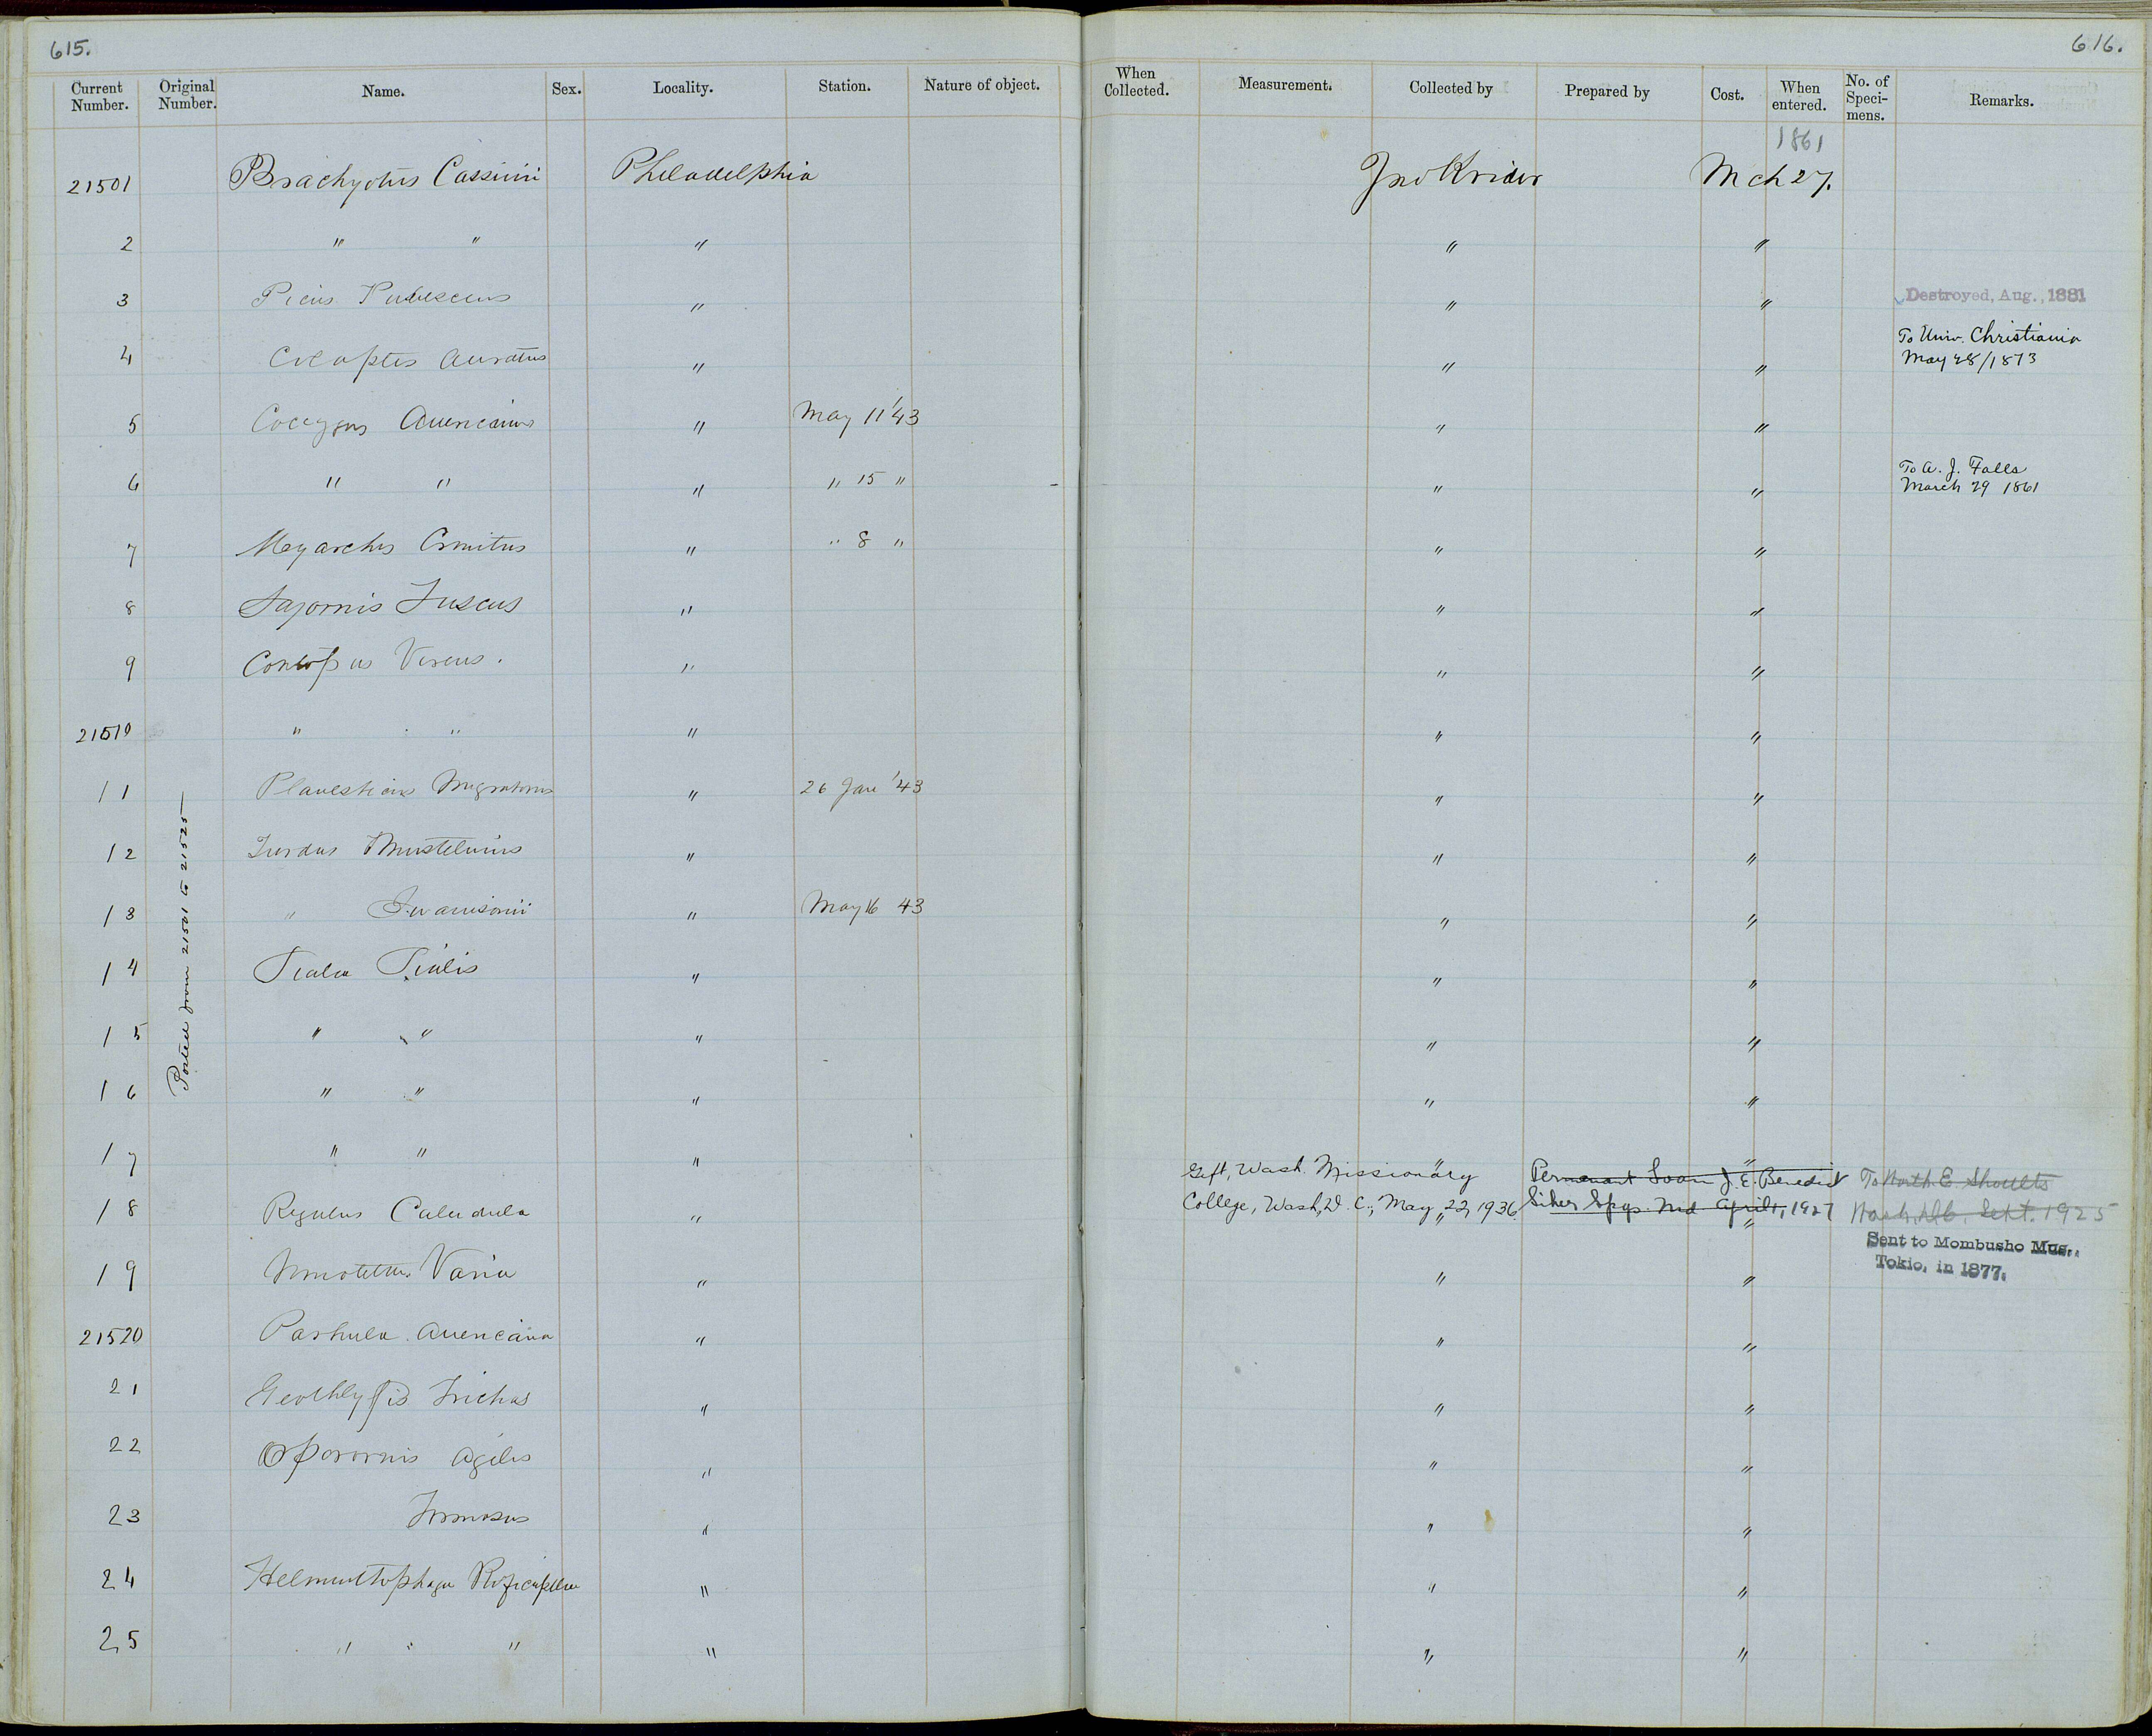 615.
616.
Current Number. Original Number. Name. Sex. Locality. Station. Nature of object. When Collected. Measurement. Collected by Prepared by Cost. When entered. No. of Speci-mens. Remarks.
1861
21501 Brachyotus Cassinii Philadelphia Jno Krider Mch 27.
2 " " " " "
3 Picus Pubescens " " " Destroyed, Aug., 1881
4 Colaptes auratus " " " To Univ. Christiania
May 28/1873
5 Coccygus Americanus " May 11 '43 " "
6 " " " " 15 " " " To A. J. Falls
March 29 1861
7 Myiarchus Crinitus " " 8 " " "
8 Sayornis Fuscus " " "
9 Contopus Virens. " " "
21510 " " " " "
11 Planesticus Migratorius " 26 Jan '43 " "
12 Turdus Mustelinus " " "
13 " Swainsonii " May 16 43 " "
14 Sialia Sialis " " "
15 " " " " "
16 " " " " "
Posted from 21501 to 21525
17 " " " " "
Gift, Wash. Missionary Permanent Loan J. E. Benedict To North E. Shoults
College, Wash, D. C., May 22, 1936. Silver Spgs. Md April 1, 1927 Sept. 1925
18 Regulus Calendula " " " Sent to Mombusho Mus.,
Tokio, in 1877.
19 Mniotilta Varia " " "
21520 Parula Americana " " "
21 Geothlypis Trichas " " "
22 Oporornis Agilis " " "
23 Formosus " " "
24 Helminthophaga Ruficapilla " " "
25 " " " " "